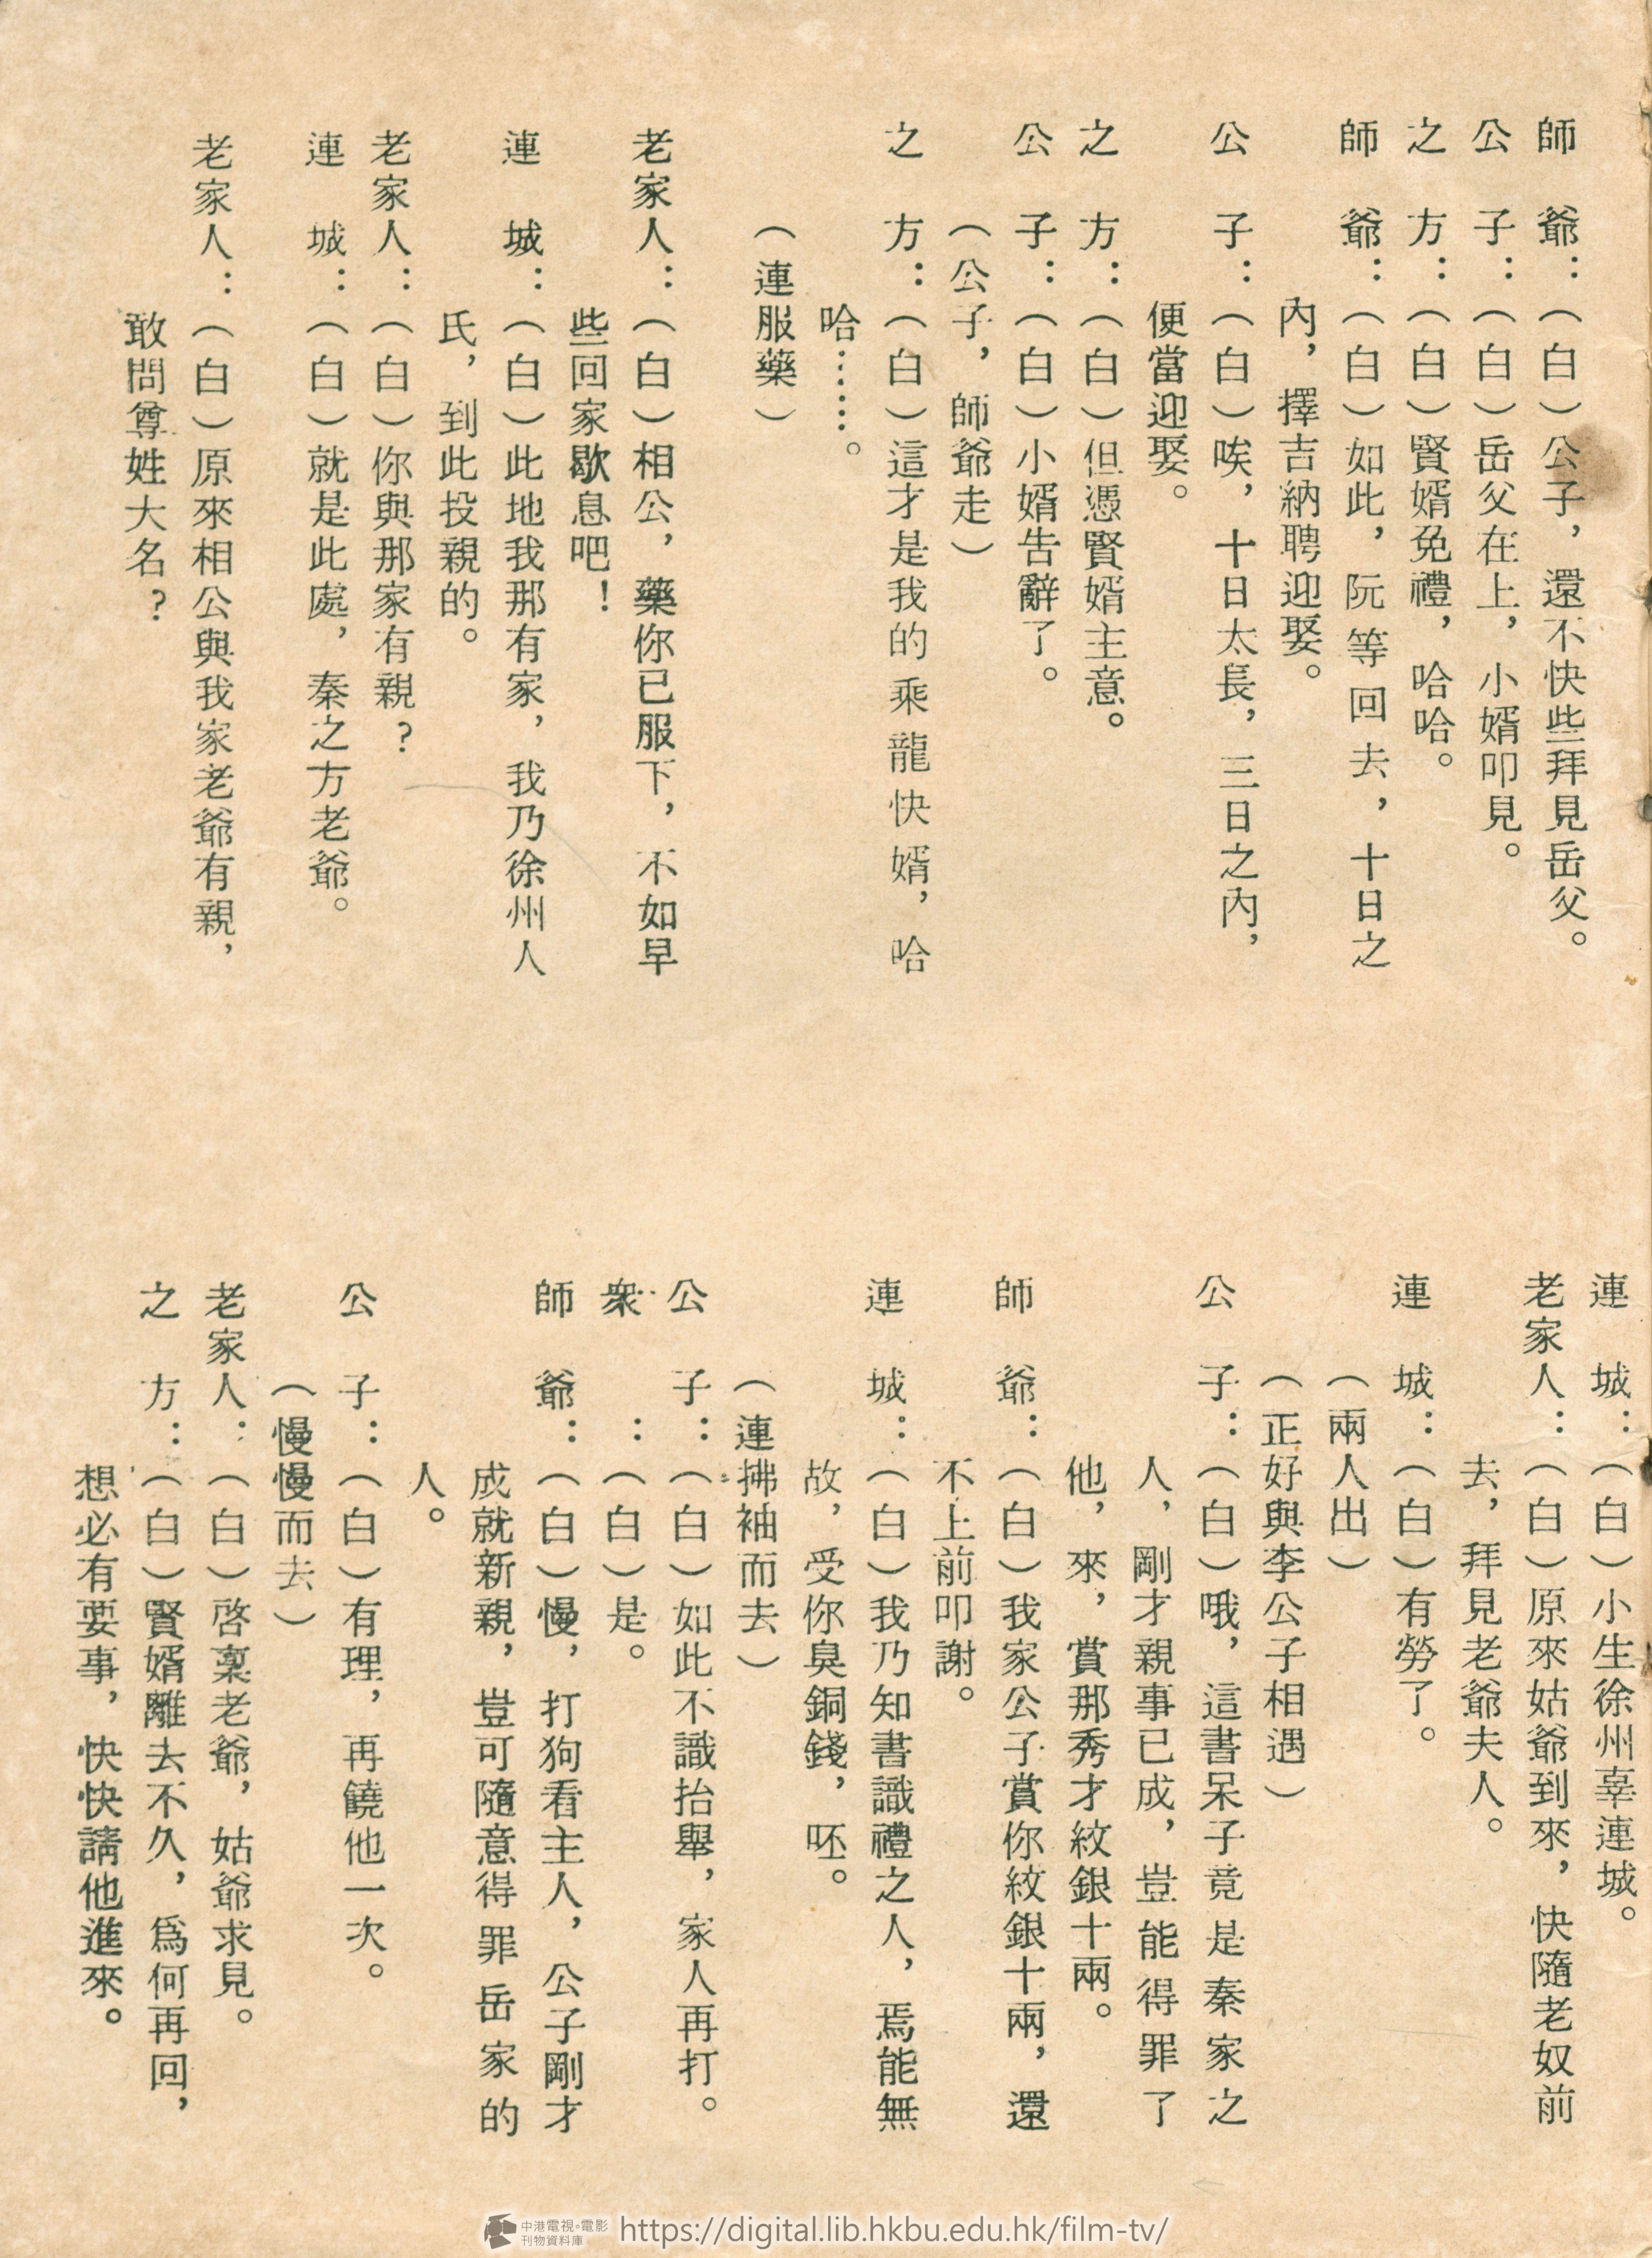 師　爺：（白）公子，還不快些拜見岳父。
公　子：（白）岳父在上，小婿叩見。
之　方：（白）賢婿免禮，哈哈。
師　爺：（白）如此，阮等回去，十日之
內，擇吉納聘迎娶。
公　子：（白）唉，十日太長，三日之內，
便當迎娶。
之　方：（白）但憑賢婿主意。
公　子：（白）小婿告辭了。
（公子，師爺走）
之　方：（白）這才是我的乘龍快婿，哈
哈……。
（連服藥）
老家人：（白）相公，藥你已服下，不如早
些回家歇息吧！
連　城：（白）此地我那有家，我乃徐州人
氏，到此投親的。
老家人：（白）你與那家有親？
連　城：（白）就是此處，秦之方老爺。
老家人：（白）原來相公與我家老爺有親，
敢問尊姓大名？
連　城：（白）小生徐州辜連城。
老家人：（白）原來姑爺到來，快隨老奴前
去，拜見老爺夫人。
連　城：（白）有勞了。
（兩人出）
（正好與李公子相遇）
公　子：（白）哦，這書呆子竟是秦家之
人，剛才親事已成，豈能得罪了
他，來，賞那秀才紋銀十兩。
師　爺：（白）我家公子賞你紋銀十兩，還
不上前叩謝。
連　城：（白）我乃知書識禮之人，焉能無
故，受你臭銅錢，呸。
（連拂袖而去）
公　子：（白）如此不識抬舉，家人再打。
衆　　：（白）是。
師　爺：（白）慢，打狗看主人，公子剛才
成就新親，豈可隨意得罪岳家的
人。
公　子：（白）有理，再饒他一次。
（慢慢而去）
老家人：（白）啓稟老爺，姑爺求見。
之　方：（白）賢婿離去不久，爲何再回，
想必有要事，快快請他進來。
中港電視·電影
刊物資料庫
https://digital.lib.hkbu.edu.hk/film-tv/